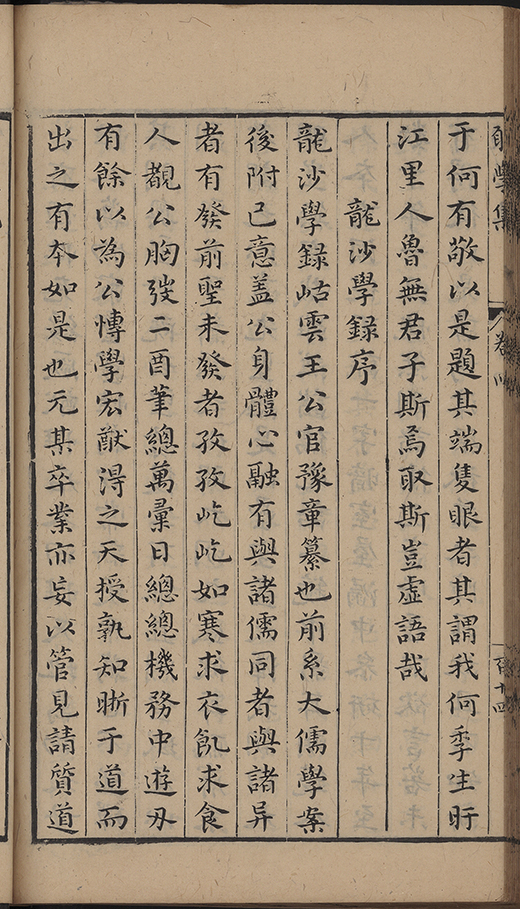 學集
卷
百十四
于何有敬以是題其端隻眼者其謂我何季生旴
江里人魯無君子斯焉取斯豈虛語哉
龍沙學録序
龍沙學録岵雲王公官豫章纂也前系大儒學案
後附已意盖公身體心融有與諸儒同者與諸异
者有發前聖未發者孜孜屹屹如寒求衣飢求食
人覩公胸弢二酉筆總萬彚日總總機務中遊刃
有餘以為公愽學宏猷淂之天授孰知昕于道而
出之有夲如是也元某卒業亦妄以管見請質道